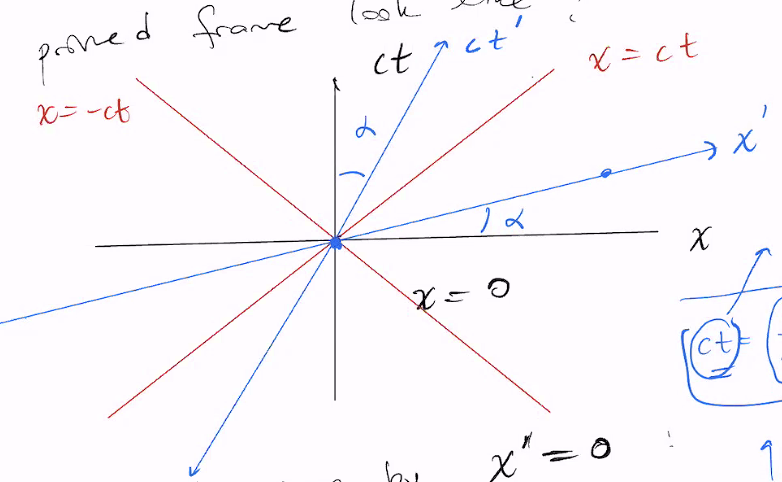 primed frame look like?
ct
ct'
x = ct
x = -ct
α
x'
α
x
x = 0
ct =
by x" = 0